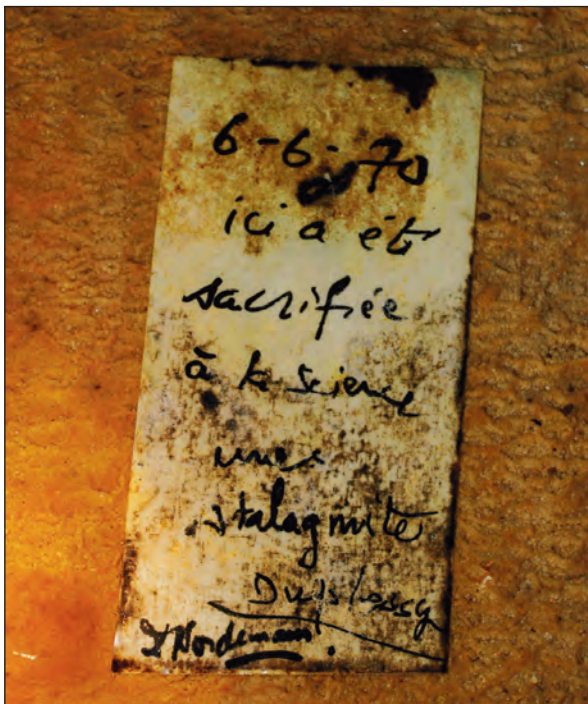 6-6-70
ici a été
sacrifiée
à la science
une
stalagmite
Duplessy
Nordemann